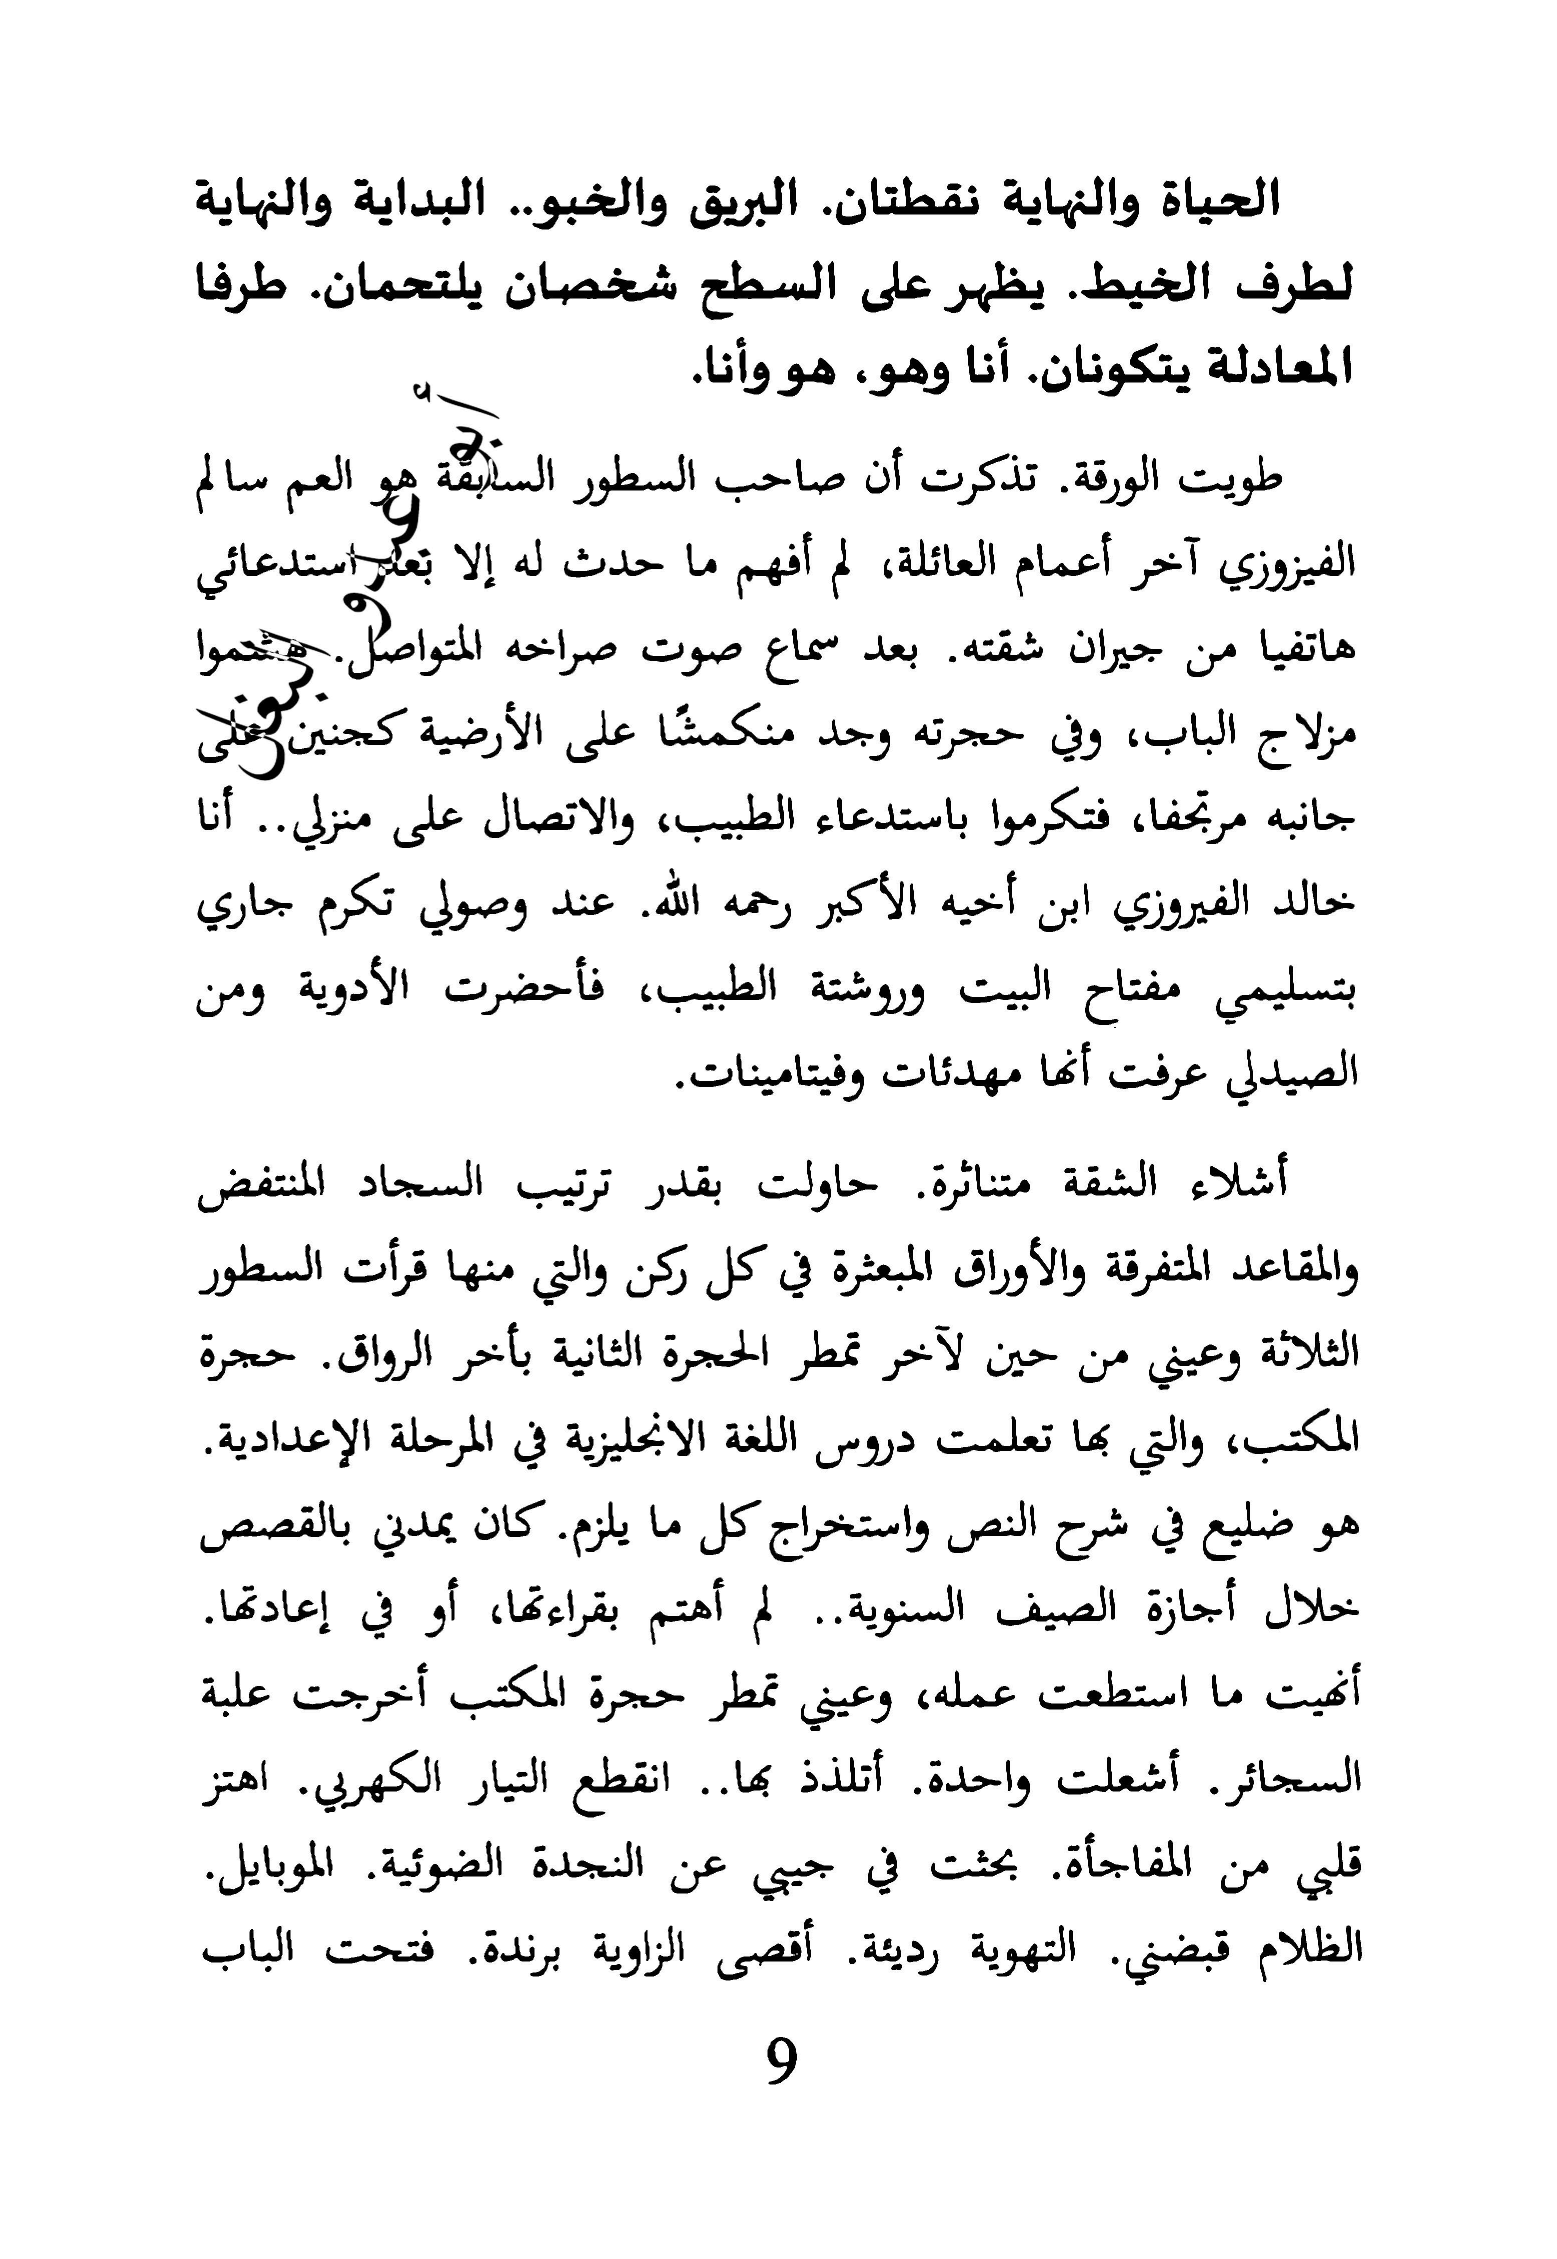 الحياة والنهاية نقطتان. البريق والخبو.. البداية والنهاية
لطرف الخيط. يظهر على السطح شخصان يلتحمان. طرفا
المعادلة يتكونان. أنا وهو، هو وأنا.
طويت الورقة. تذكرت أن صاحب السطور السابقة هو العم سالم
الفيزوزي آخر أعمام العائلة، لم أفهم ما حدث له إلا بعد استدعائي
هاتفيا من جيران شقته. بعد سماع صوت صراخه المتواصل. هشموا
مزلاج الباب، وفي حجرته وجد منكمشًا على الأرضية كجنين على
جانبه مرتجفا، فتكرموا باستدعاء الطبيب، والاتصال على منزلي.. أنا
خالد الفيروزي ابن أخيه الأكبر رحمه الله. عند وصولي تكرم جاري
بتسليمي مفتاح البيت وروشتة الطبيب، فأحضرت الأدوية ومن
الصيدلي عرفت أنها مهدئات وفيتامينات.
أشلاء الشقة متناثرة. حاولت بقدر ترتيب السجاد المنتفض
والمقاعد المتفرقة والأوراق المبعثرة في كل ركن والتي منها قرأت السطور
الثلاثة وعيني من حين لآخر تمطر الحجرة الثانية بأخر الرواق. حجرة
المكتب، والتي بها تعلمت دروس اللغة الانجليزية في المرحلة الإعدادية.
هو ضليع في شرح النص واستخراج كل ما يلزم. كان يمدني بالقصص
خلال أجازة الصيف السنوية.. لم أهتم بقراءتها، أو في إعادتها.
أنهيت ما استطعت عمله، وعيني تمطر حجرة المكتب أخرجت علبة
السجائر. أشعلت واحدة. أتلذذ بها.. انقطع التيار الكهربي. اهتز
قلبي من المفاجأة. بحثت في جيبي عن النجدة الضوئية. الموبايل.
الظلام قبضني. التهوية رديئة. أقصى الزاوية برندة. فتحت الباب
9